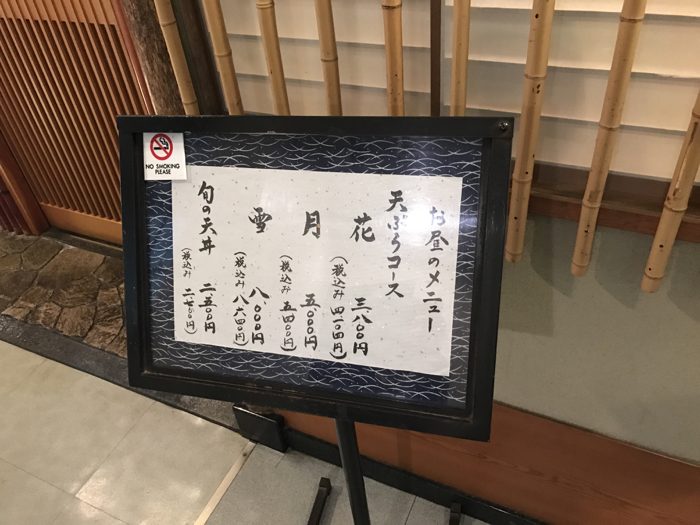 お昼のメニュー
天ぷらコース
花 三八〇〇円
(税込み 四一〇四円)
月 五、〇〇〇円
(税込み 五四〇〇円)
雪 八、〇〇〇円
(税込み 八六四〇円)
旬の天丼 二五〇〇円
(税込み 二七〇〇円)
NO SMOKING
PLEASE